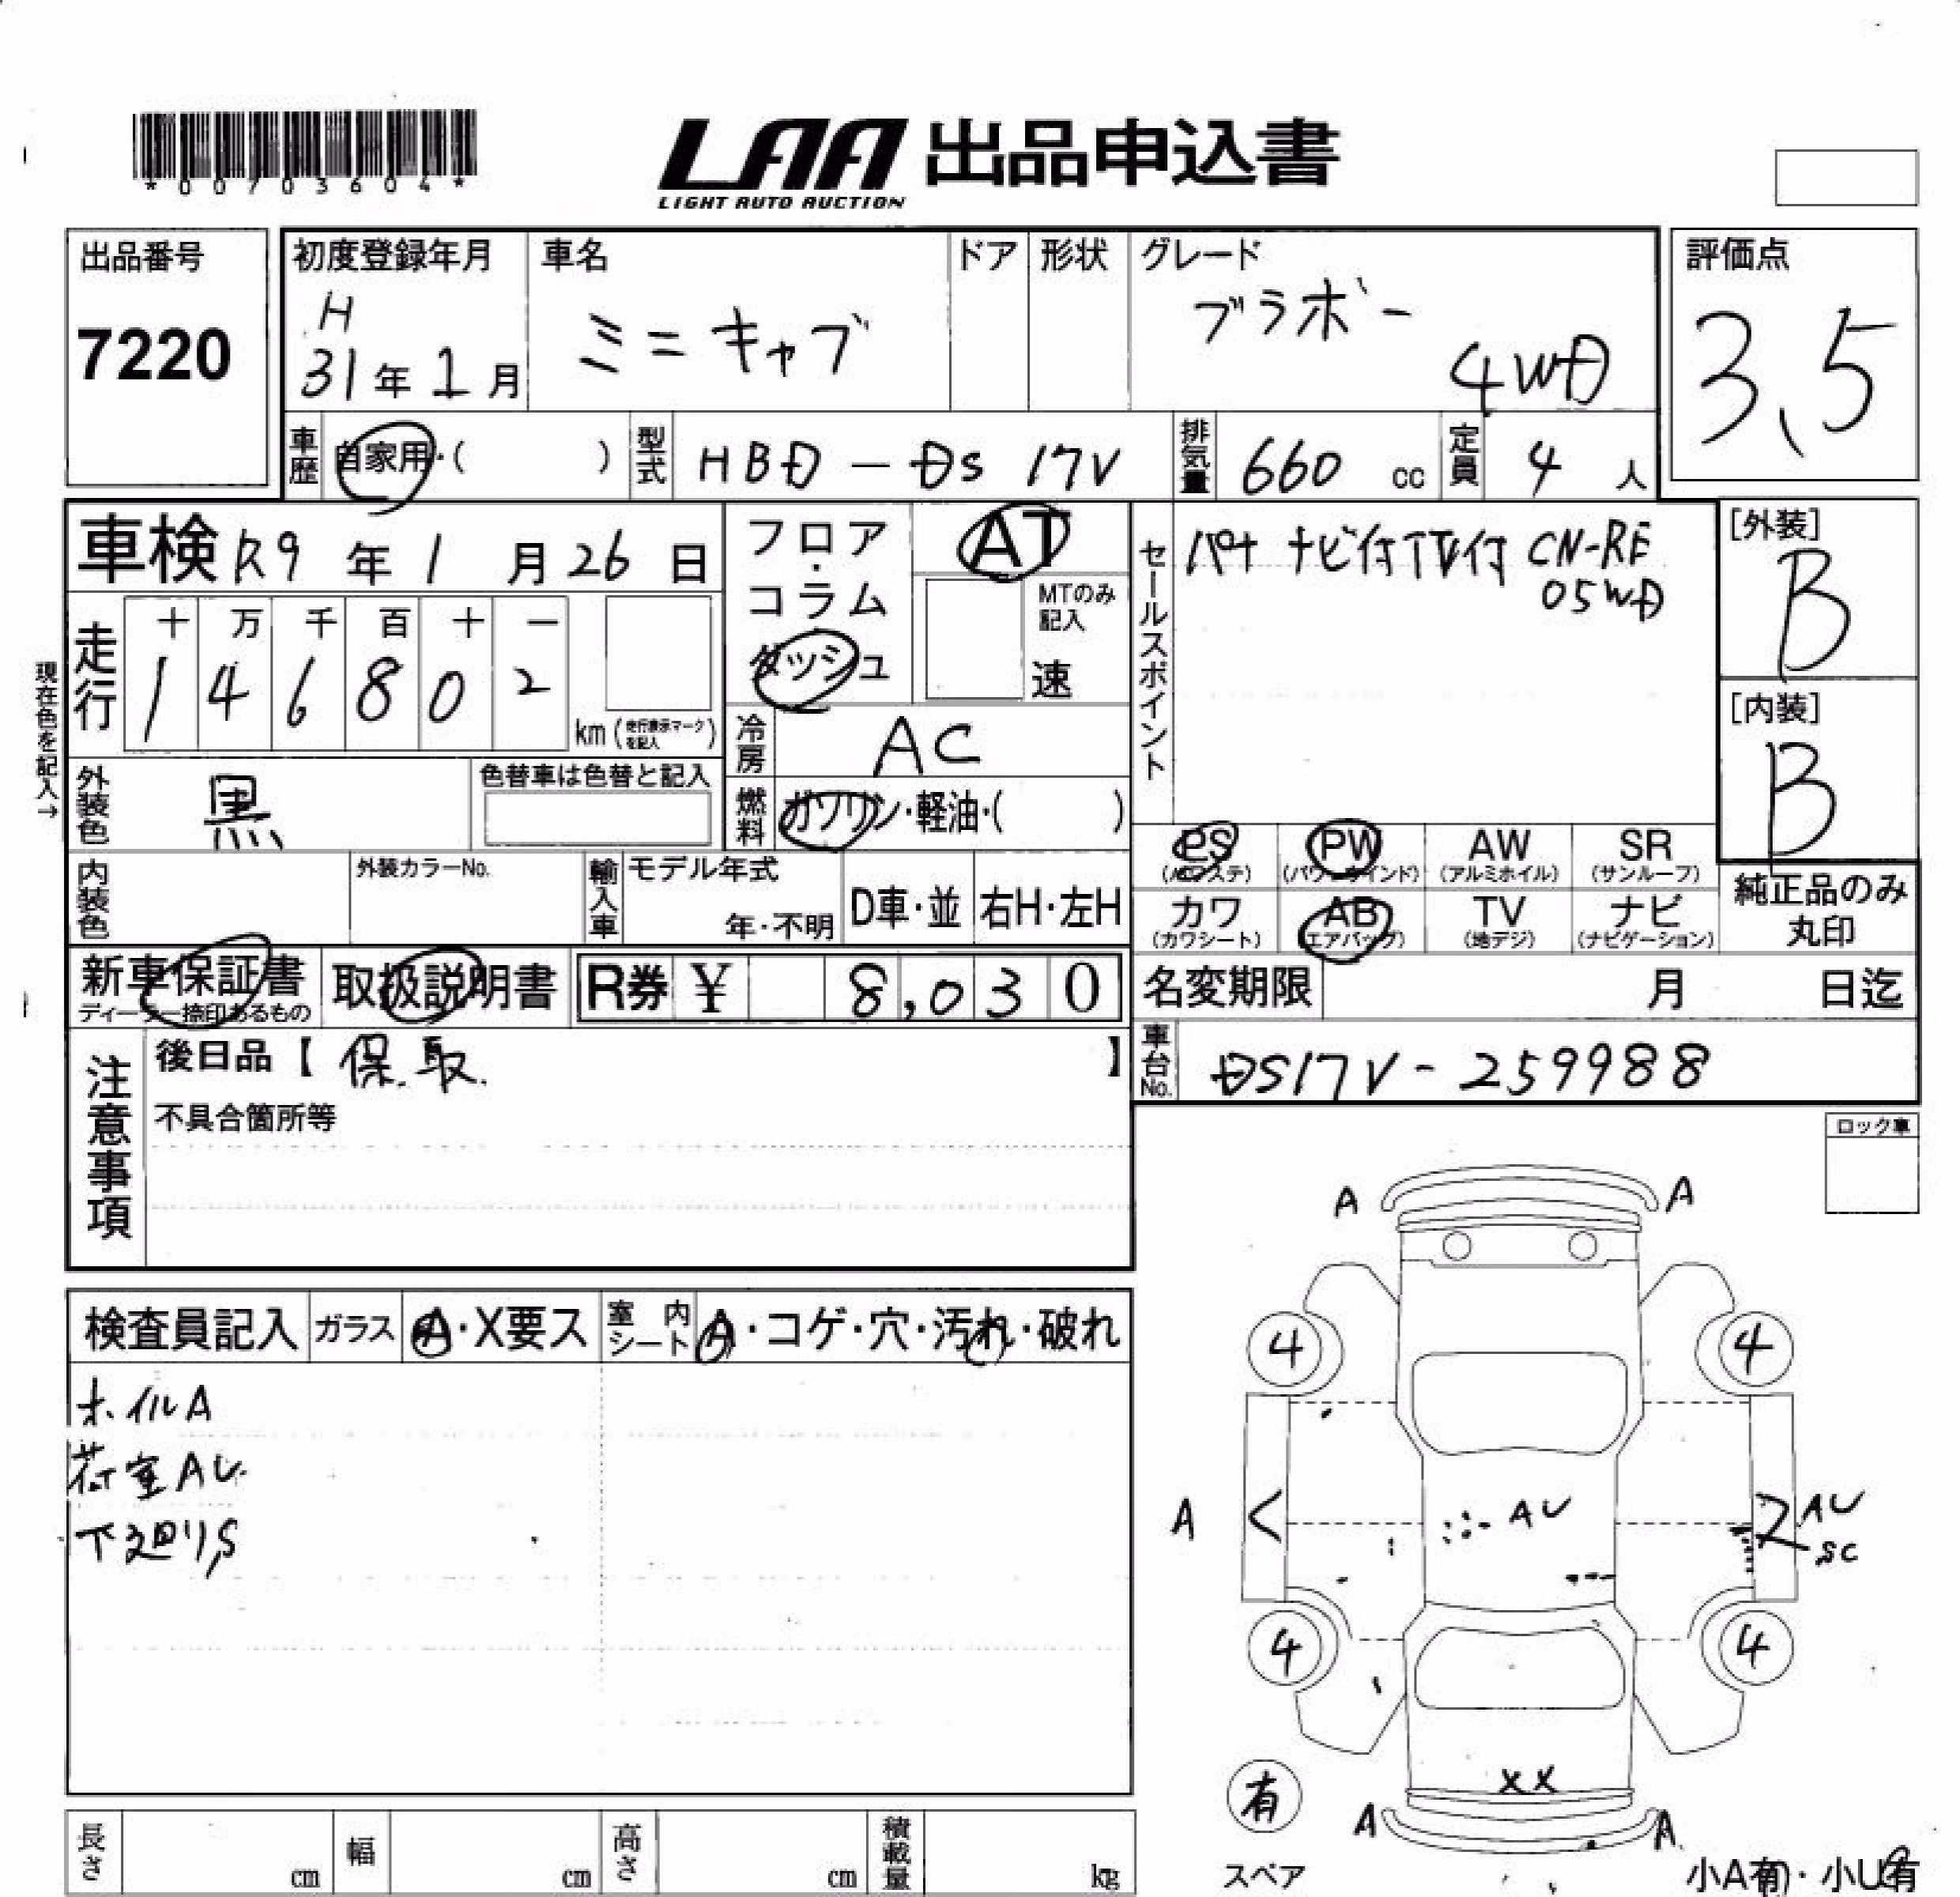 *00703604*
LAA 出品申込書
LIGHT AUTO AUCTION
出品番号
7220
初度登録年月
H
31年1月
車名
ミニキャブ
ドア
形状
グレード
ブラボー
4WD
評価点
3.5
車歴 自家用・( )
型式 HBD-DS17V
排気量 660 cc
定員 4 人
車検 R9年1月26日
フロア・コラム
ダッシュ
AT
MTのみ記入
速
セールスポイント
パナ ナビ付TV付 CN-RE
05WD
[外装]
B
[内装]
B
現在色を記入→
走行
十 万 千 百 十 一
1 4 6 8 0 2
km (走行表示マークを記入)
冷房 AC
外装色 黒
色替車は色替と記入
燃料 ガソリン・軽油・( )
PS PW AW SR
(パワステ) (パワーウインド) (アルミホイル) (サンルーフ)
カワ AB TV ナビ
(カワシート) (エアバッグ) (地デジ) (ナビゲーション)
純正品のみ
丸印
内装色
外装カラーNo.
輸入車
モデル年式
年・不明
D車・並
右H・左H
新車保証書
ディーラー捺印あるもの
取扱説明書
R券 ¥ 8,030
名変期限 月 日迄
注意事項
後日品【 保.取. 】
不具合箇所等
車台No. DS17V-259988
ロック車
検査員記入
ガラス A・X要ス
室内シート A・コゲ・穴・汚れ・破れ
ホイルA
荷室AU
下廻りS
A A
4 4
A
AU
AU
SC
4 4
XX
A A
有
スペア
小A有・小U有
長さ cm
幅 cm
高さ cm
積載量 kg